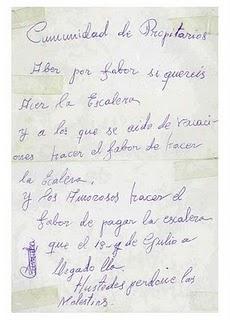 Cumunidad de Propitarios
Aber por fabor si quereis
Acer la Escalera
y a los que se aido de vacaci
ones hacer el fabor de hacer
la Ecalera,
y los Amorosos hacer el
fabor de pagar la escalera
que el 18-y de Gulio a
llegado lla.
Hustedes perdone las
Molestias.